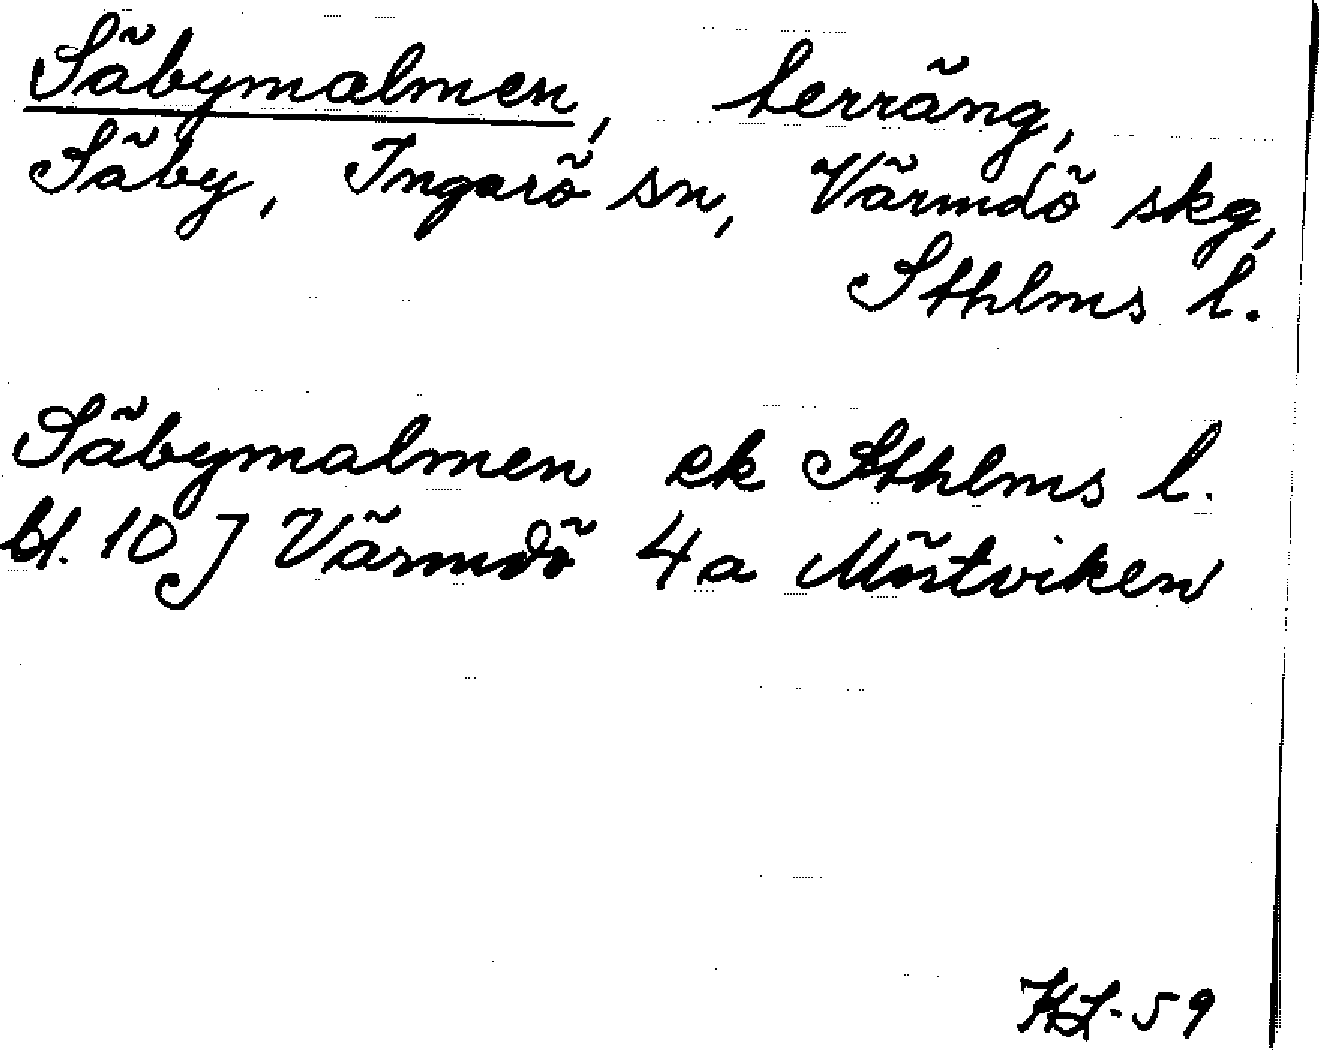 Säbymalmen, terräng,
Säby, Ingarö sn, Värmdö skg,
Sthlms l.
Säbymalmen ek Sthlms l.
bl. 10 J Värmdö 4a Mörtviken
KL-59